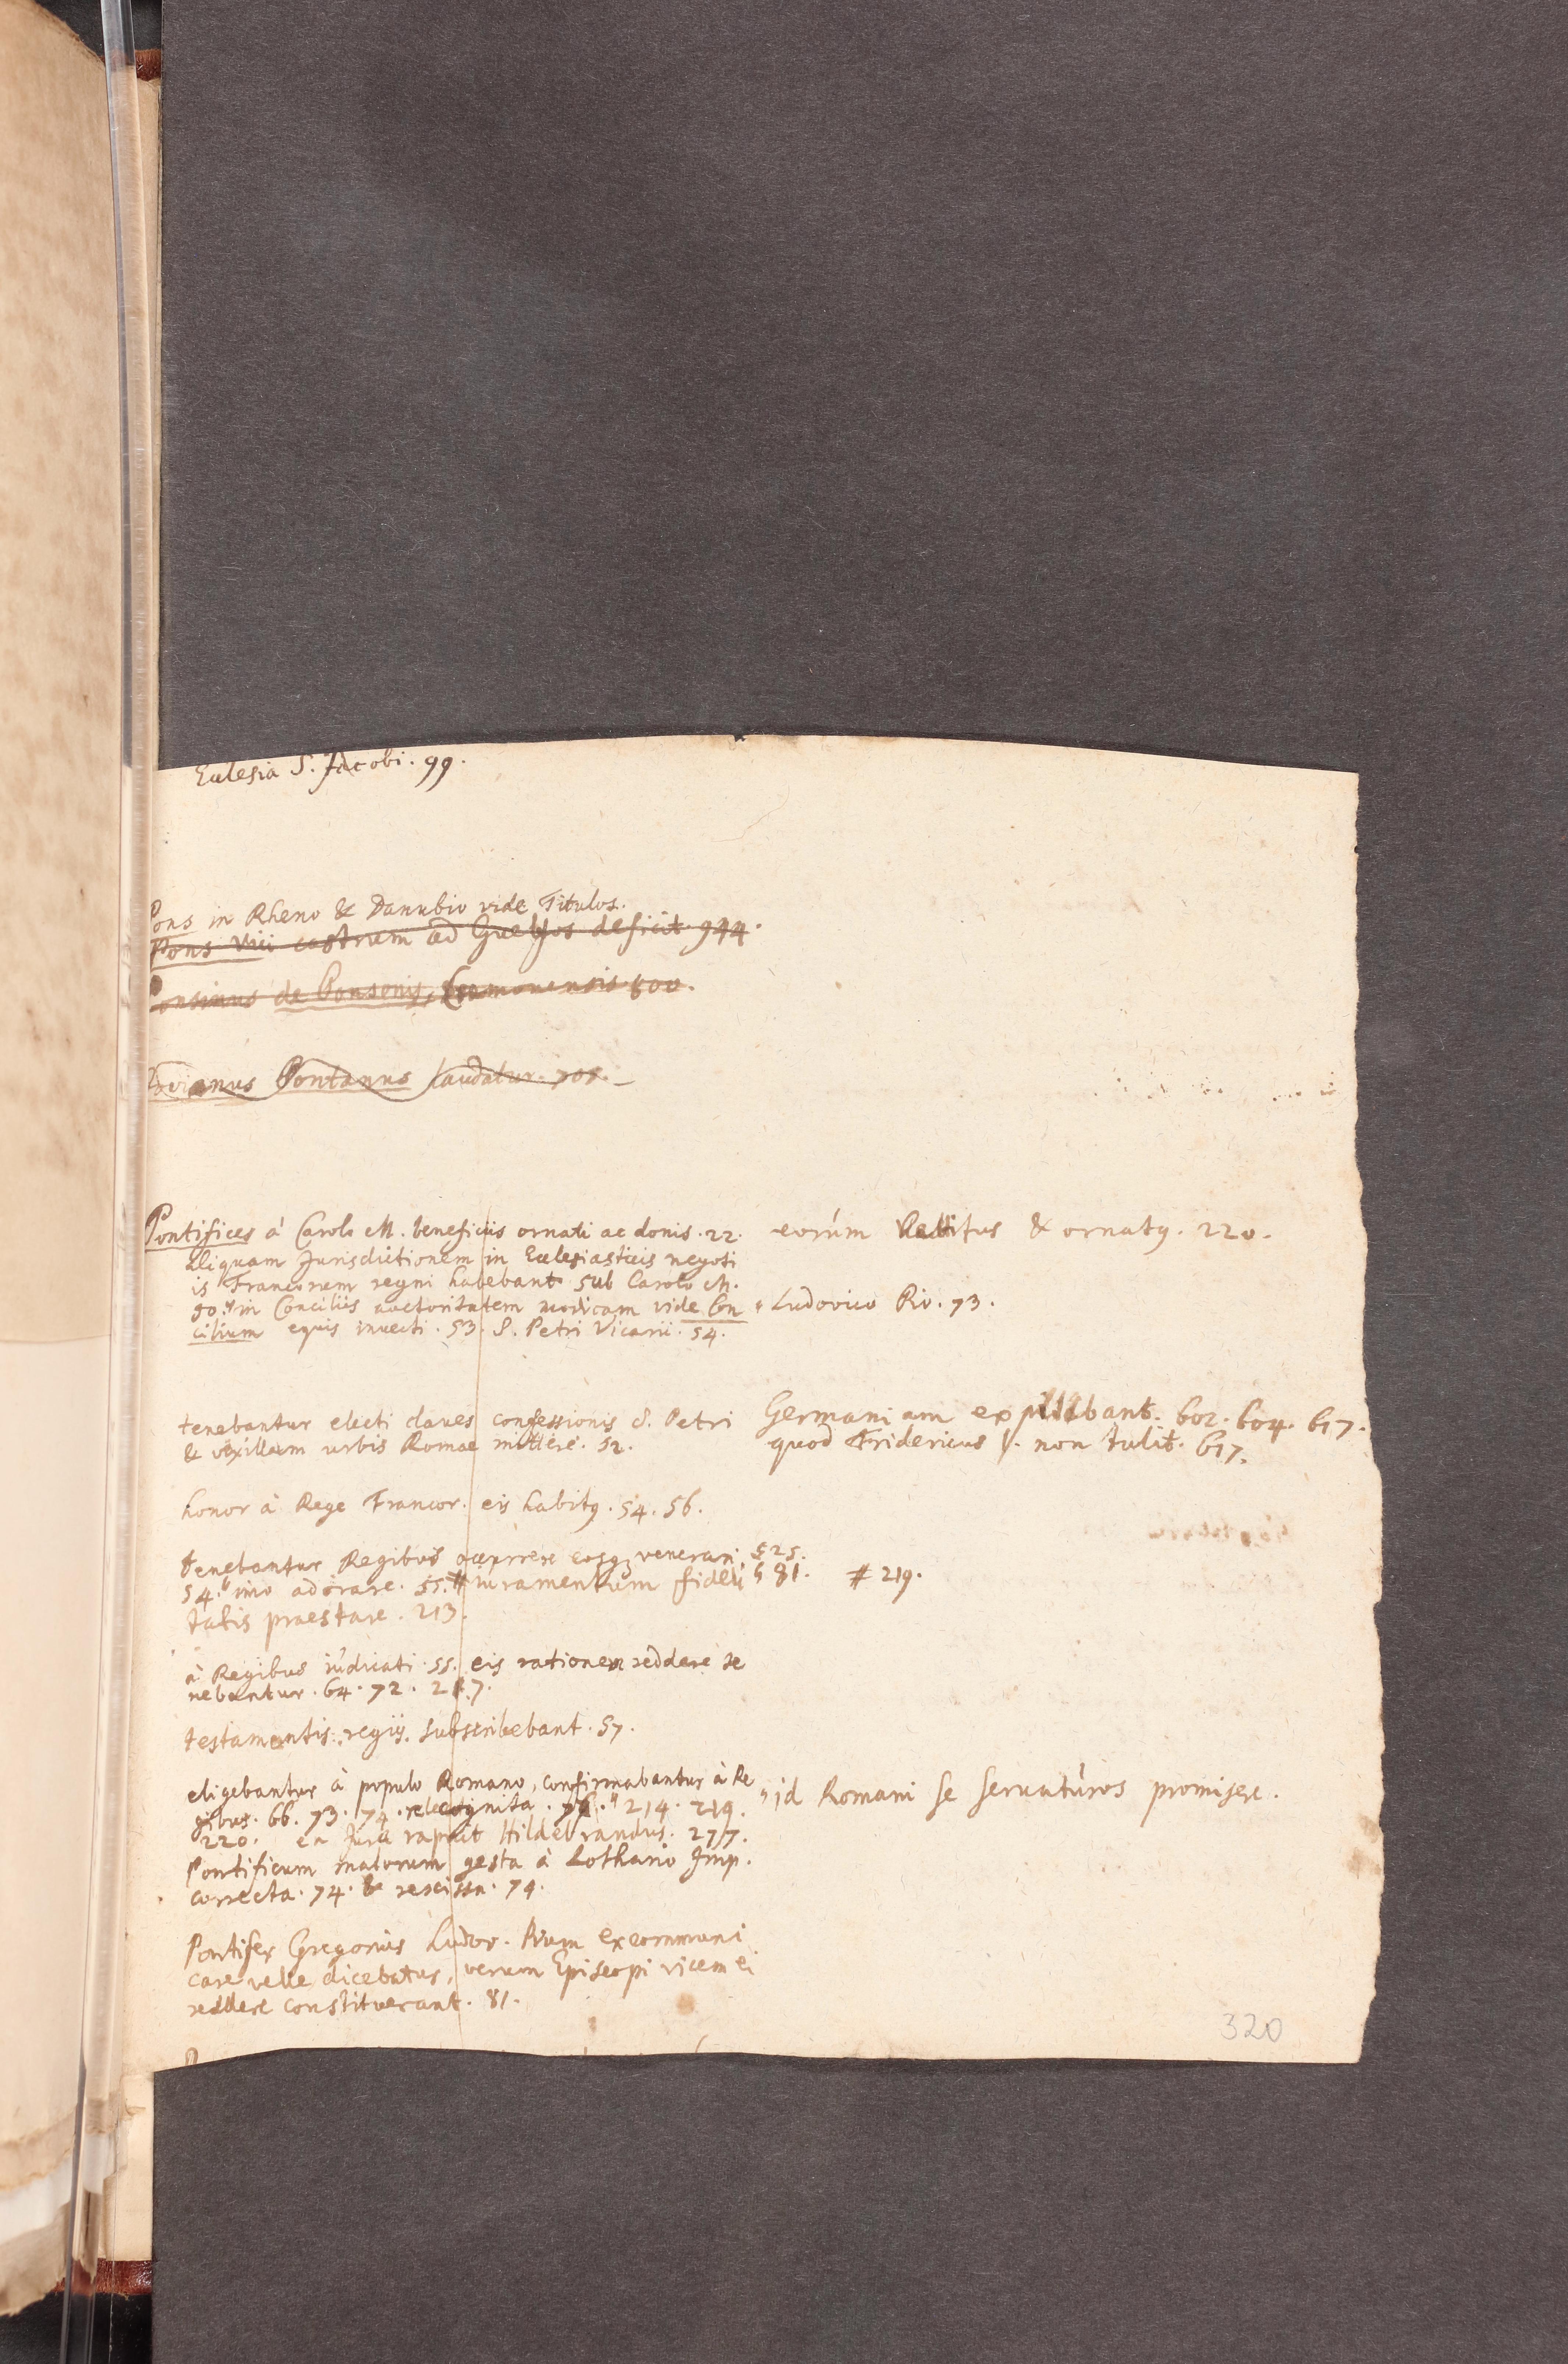 Ecclesia S. Jacobi. 99.
Pons in Rheno & Danubio vide Titulos.
Pons Vici castrum ad Guelfos deficit. 944.
Ponsinus de Ponsonis, Cremonensis 500.
Jovianus Pontanus laudatur. 705.
Pontifices à Carolo M. beneficiis ornati ac donis. 22.
aliquam Jurisdictionem in Ecclesiasticis negoti
is Francorum regni habebant sub Carolo M.
50. in Conciliis auctoritatem modicam vide Con
cilium equis invecti. 53. S. Petri Vicarii. 54.
eorum vestitus & ornatq. 220.
" Ludovico Pio. 73.
tenebantur electi claves confessionis S. Petri
& vexillum urbis Romae mittere. 52.
Germaniam expilabant. 602. 604. 617.
quod Fridericus 1. non tulit. 617.
honor à Rege Francor. eis habitq. 54. 56.
tenebantur Regibus occurrere eosq; venerari. 525.
54. " imo adorare. 55. # iuramentum fideli " 81. # 219.
tatis praestare. 213.
à Regibus iudicati. 55. eis rationem reddere te
nebantur. 64. 72. 217.
testamentis regiis subscribebant. 57.
eligebantur à populo Romano, confirmabantur à Re
gibus. 66. 73. 74. re cognita. 76. " 214. 219.
220. ea Jura rapuit Hildebrandus. 277.
" id Romani se servaturos promisere.
Pontificum malorum gesta à Lothario Imp.
correcta. 74. & rescissa. 74.
Pontifex Gregorius Ludov. Pium excommuni
care velle dicebatur, verum Episcopi vicem ei
reddere constituerant. 81.
320